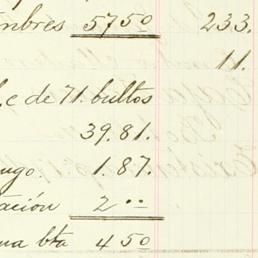 mbres 57 50 233.
11.
e de 71. bultos
39.81.
ugo. 1.87.
ación 2 00
ma bta 4 50